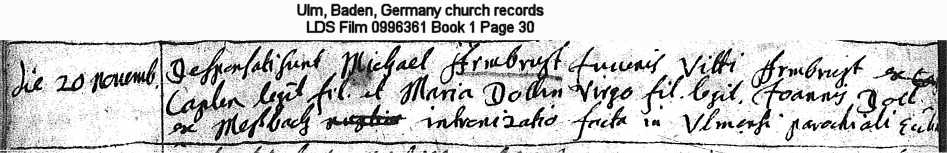 Ulm, Baden, Germany church records
LDS Film 0996361 Book 1 Page 30
die 20 novemb. Desponsati sunt Michael Armbrust Juvenis Vitti Armbrust ex
Caplen legit fil. et Maria Dollin Virgo fil. legit. Joannis Doll
ex Mesbach intronizatio facta in Ulmensi parochiali